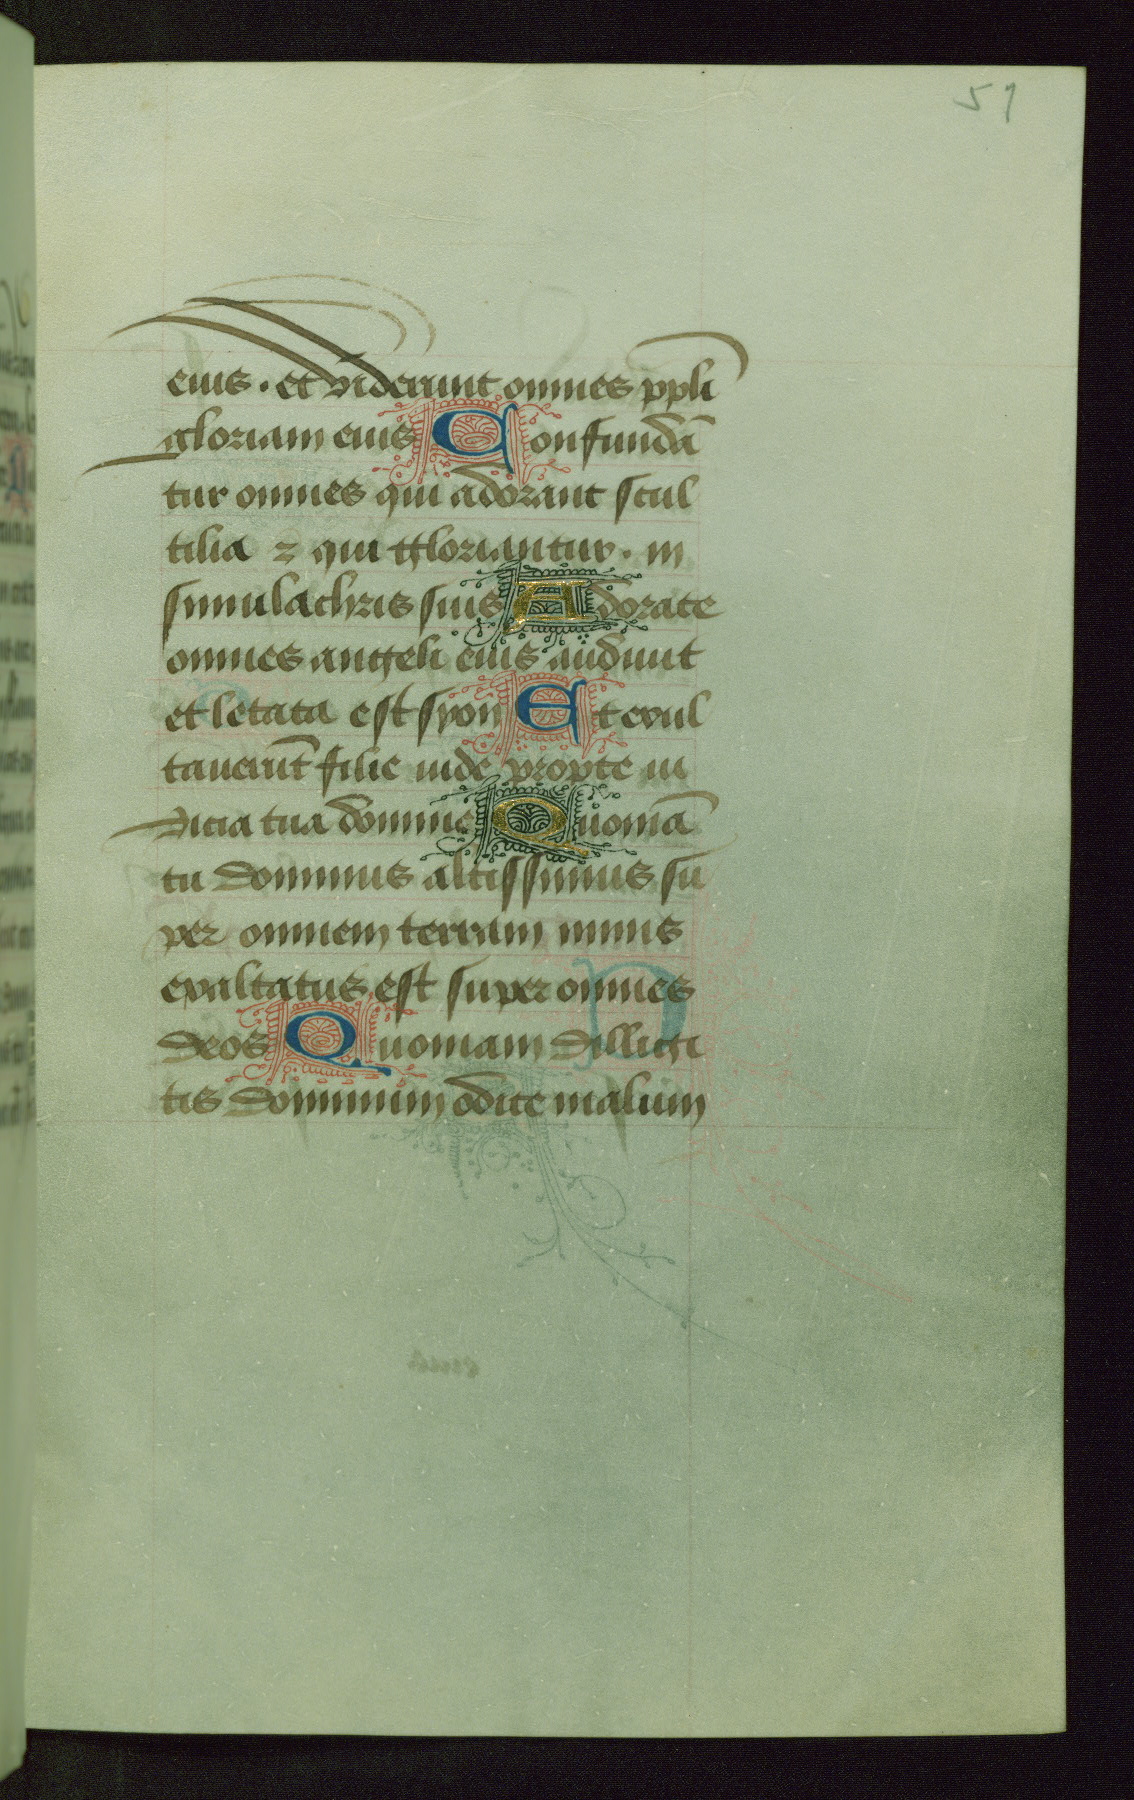 51
eius . et viderunt omnes ppli
gloriam eius Confundā
tur omnes qui adorant scul
tilia ⁊ qui gloriantur . in
simulachris suis Adorate
omnes angeli eius audiuit
et letata est syon Et exul
tauerūt filie iude propte iu
dicia tua domine Quoniā
tu dominus altissimus su
per omnem terram nimis
exaltatus est super omnes
deos Quoniam dilligi
tis dominum odite malum